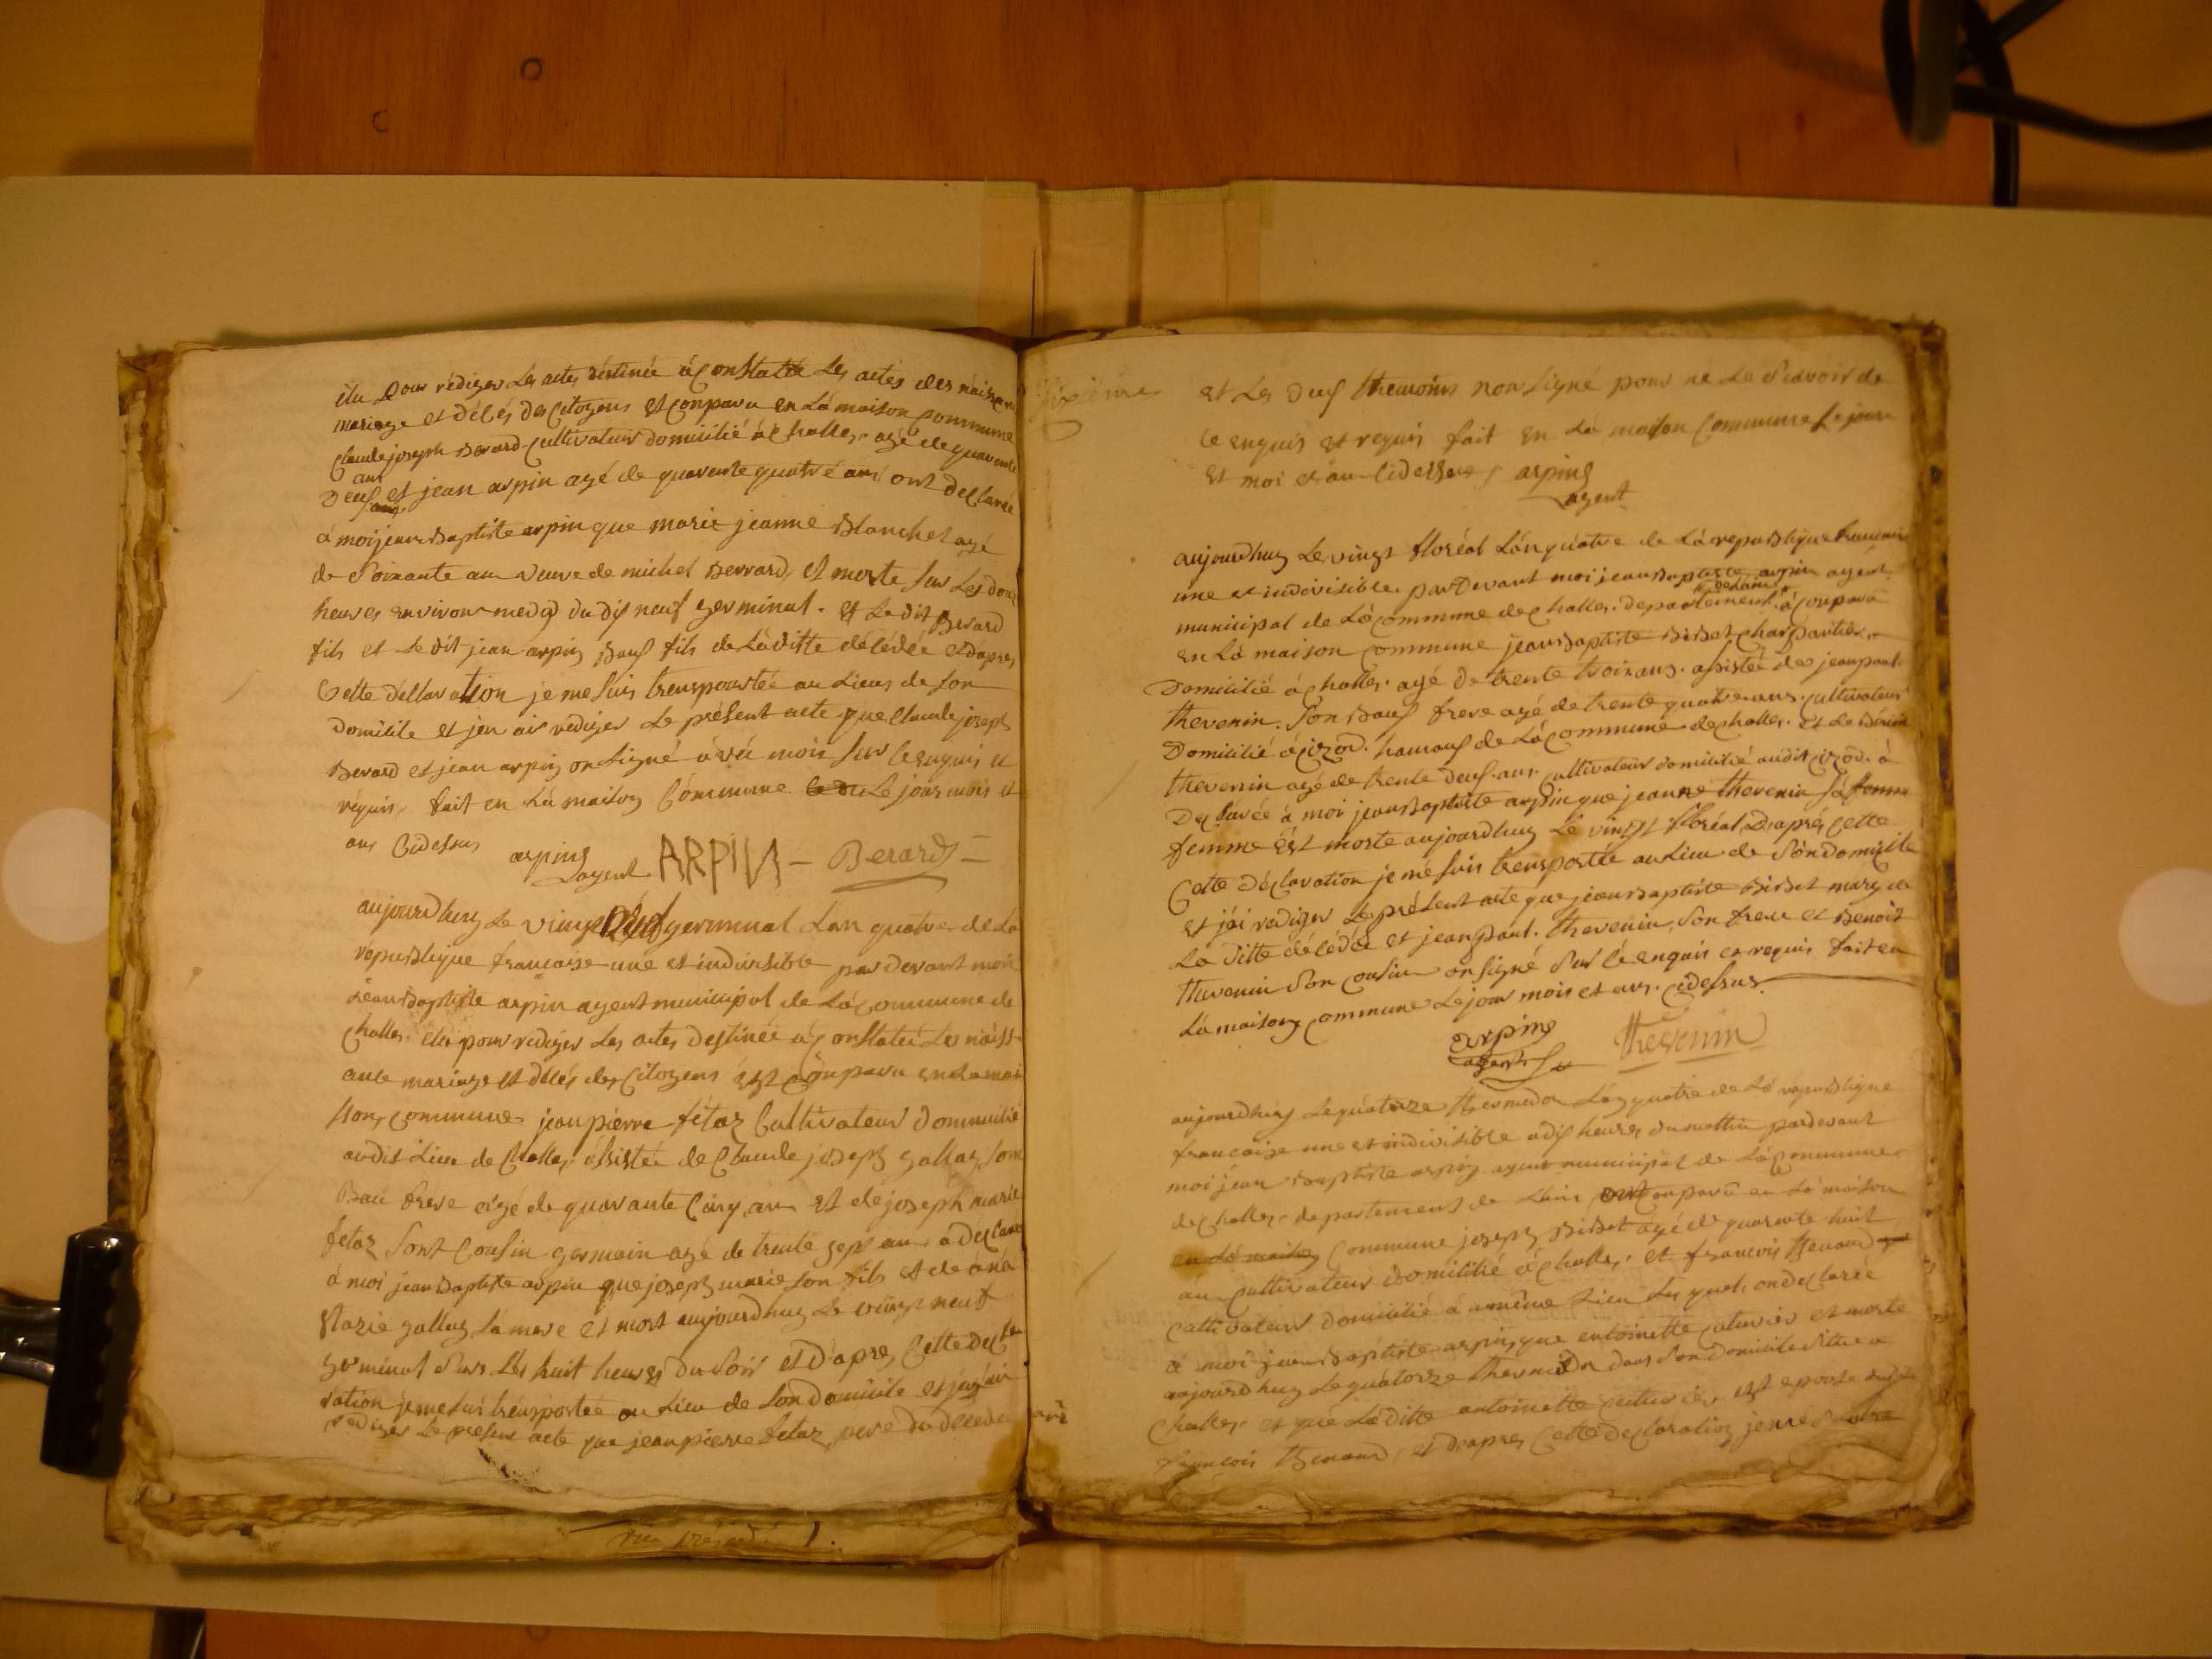 élu pour rédiger les actes déstinée à constatée les actes des naisance
mariage et délés des Citoyens est conparu en la maison commune
Claude joseph Berard Cultivateur domicilié à Challes agé de quarante
ans
Deuf et jean arpin agé de quarante quatré ans ont déclarée
à moi jean Baptiste arpin que marie jeanne Blanchet agé
de Soixante ans veuve de michel Berrard est morte sur les douz
heures environ du dif neuf germinal. et le dit Berard
fils et le dit jean arpin Bauf fils de la ditte délédée et d'apres
Cette déllaration je me suis trensportée au lieus de son
domicile et j'en ai rédiger le présent acte que Claude joseph
Berard et jean arpin on signé avéc mois sur le enquis et
réquis, fait en la maison Commune le jour mois et
ans Cidessus
arpin
L'agent ARPIN - Berard
aujourdhuy le vingt neuf germinal L'an quatre de la
république francaise une et indivisible par devant mois
Jean Baptiste arpin agent municipal de la Commune de
Challes élu pour rédiger les actes déstinée à constatée les naiss-
ance mariage et délés des Citoyens ést conparu en la mai
son, commune jean pierre fétaz Cultivateur dommicilié
audit lieu de Challes, assistée de Claude joseph gallay, son
Bau frére agé de quarante Cinq ans et de joseph marie
fetaz sont Cousin germain agé de trente sept ans a déclaré
à moi jean Baptiste arpin que joseph marie son fils et de ana
stazie gallay sa mere est mort aujourdhuy le vingt neuf
germinal sur les huit heures du soir et d'apres Cette décla
ration je me suis trensportée au lieu de son domicile et j'en ai
rédiger le présent acte que jean pierre fetaz, pere du décédé
et les deuf themoins non signé pour ne le scavoir de
ce enquis et requis fait en la maison commune le jour
et moi et an Cidessus, arpin
agent
aujourdhuy le vingt floréal L'an quatre de la république francaise
une et indivisible. par devant moi jean Baptiste arpin agent
de l'ain
municipal de la commune de Challes. departement à conparu
en la maison commune jean Baptiste Bibet Charpantier
Domicilié à challes. agé de trente trois ans. asistée de jean paul
thevenin. Son Bauf frere agé de trente quatre ans. cultivateur
Domicilié à cizod. hamauf de la commune de challes. et de Bénoit
thevenin agé de trente deuf. ans. Cultivateur domicilié audit cizod. à
Déclarée à moi jean Baptiste arpin que jeanne thevenin sa femme
femme ést morte aujourdhuy le vingt floréal, D'aprés Cette
Cette déclaration je mé suis trensportée au lieu de son domicile
et j'ai rediger le présent acte que jean Baptiste Bibet mary de
La ditte délédée et jean paul. thevenin, son frere et Benoit
thevenin son cousin on signé sur le enquis et requis fait en
La maison commune le jour mois et ans. cidessus
arpin thevenin
agent
aujourdhuy le quatorze thermidor L'an quatre de la république
francaise une et indivisible à dif heures du mattin pardevant
moi jean Baptiste arpin agent municipal de la commune
de challes. departement de L'ain ont conparu en la maison
en la maison Commune joseph Bibet agé de quarante huit
an cultivateur domicilié à challes. et francois thenaud
cultivateur domicilié à u même lieu les quels on déclarée
à moi jean Baptiste arpin, que antoinette cuturier et morte
aujourdhuy le quatorze thermidor dans son domicile situé a
challes. et que la ditte antoinette cuturier est epoose
francois thenaud, et d'apres Cette déclaration je mé